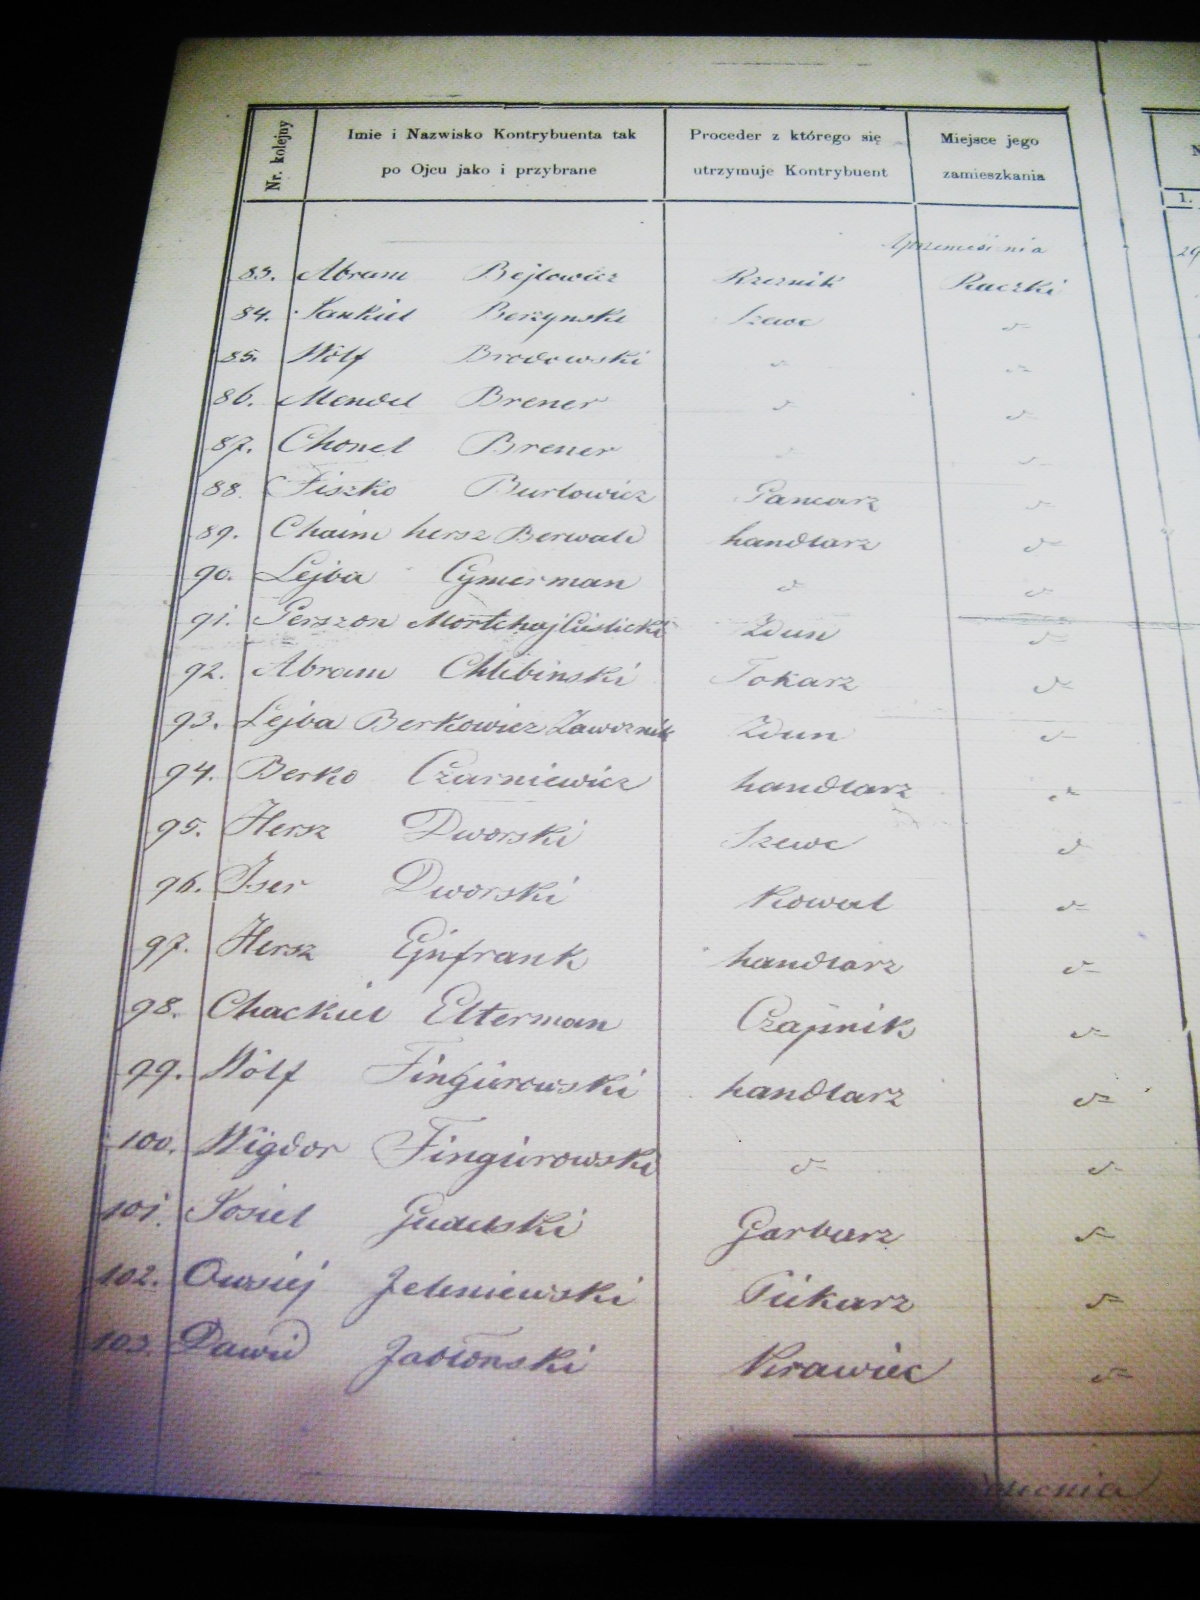 Nr. kolejny Imie i Nazwisko Kontrybuenta tak po Ojcu jako i przybrane Proceder z którego się utrzymuje Kontrybuent Miejsce jego zamieszkania
1.
z przeniesinia
83. Abram Bejlowicz Rzeznik Raczki
84. Jankiel Berzynski Szewc d-
85. Wólf Brodowski d- d-
86. Mendel Brener d- d-
87. Chonel Brener d- d-
88. Fiszko Burlowicz Pancarz d-
89. Chaim hersz Berwald handlarz d-
90. Lejba Cymerman d- d-
91. Gerszon Mortchaj Zdun d-
92. Abram Chlebinski Tokarz d-
93. Lejba Berkowicz Zdun d-
94. Berko Czarniewicz handlarz d-
95. Hersz Dworski Szewc d-
96. Iser Dworski Kowal d-
97. Hersz Ejnfrank handlarz d-
98. Chackiel Elterman Czapnik d-
99. Wólf Fingúrowski handlarz d-
100. Wigdor Fingúrowski d- d-
101. Josiel Gudelski Garbarz d-
102. Owsiej Jeleniewski Piekarz d-
103. Dawid Jabłonski Krawiec d-